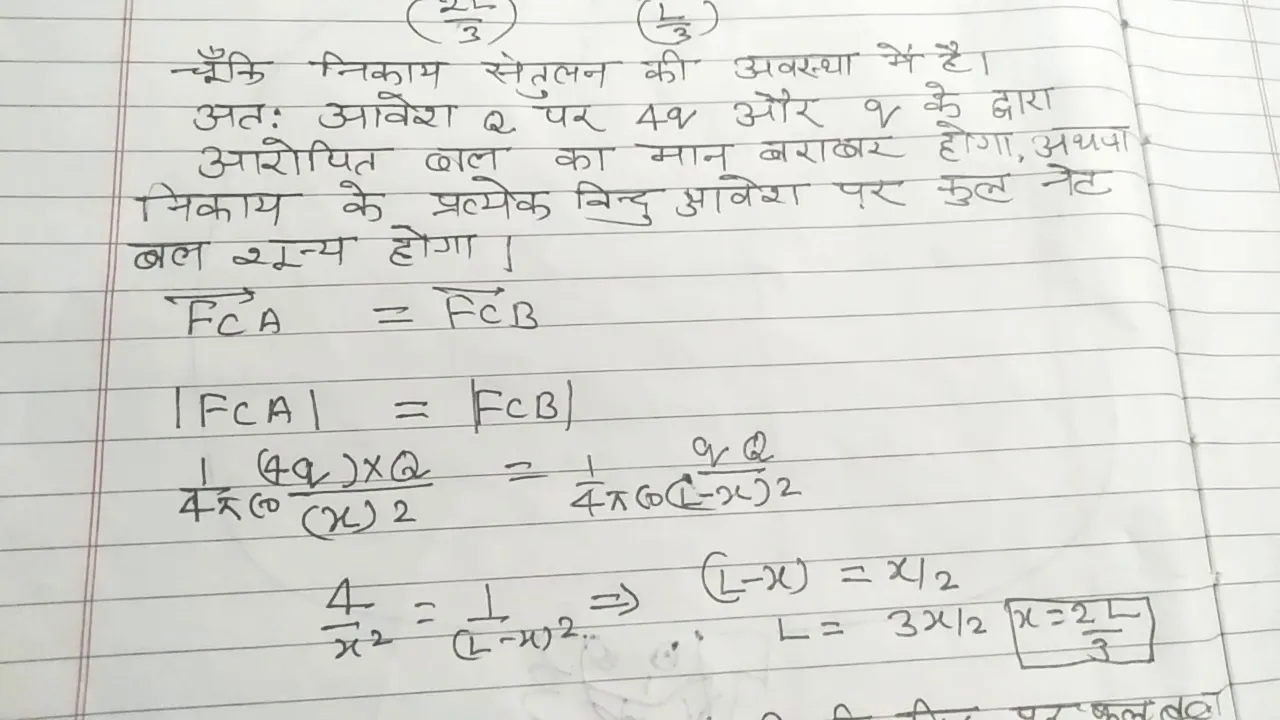 (2L/3) (L/3)
चूँकि निकाय संतुलन की अवस्था में है।
अतः आवेश Q पर 4q और q के द्वारा
आरोपित बल का मान बराबर होगा, अथवा
निकाय के प्रत्येक बिन्दु आवेश पर कुल नेट
बल शून्य होगा।
FCA = FCB
|FCA| = |FCB|
1/4π∈0 (4q)×Q/(x)2 = 1/4π∈0 qQ/(L-x)2
4/x2 = 1/(L-x)2 ⇒ (L-x) = x/2
∴ L = 3x/2 x = 2L/3